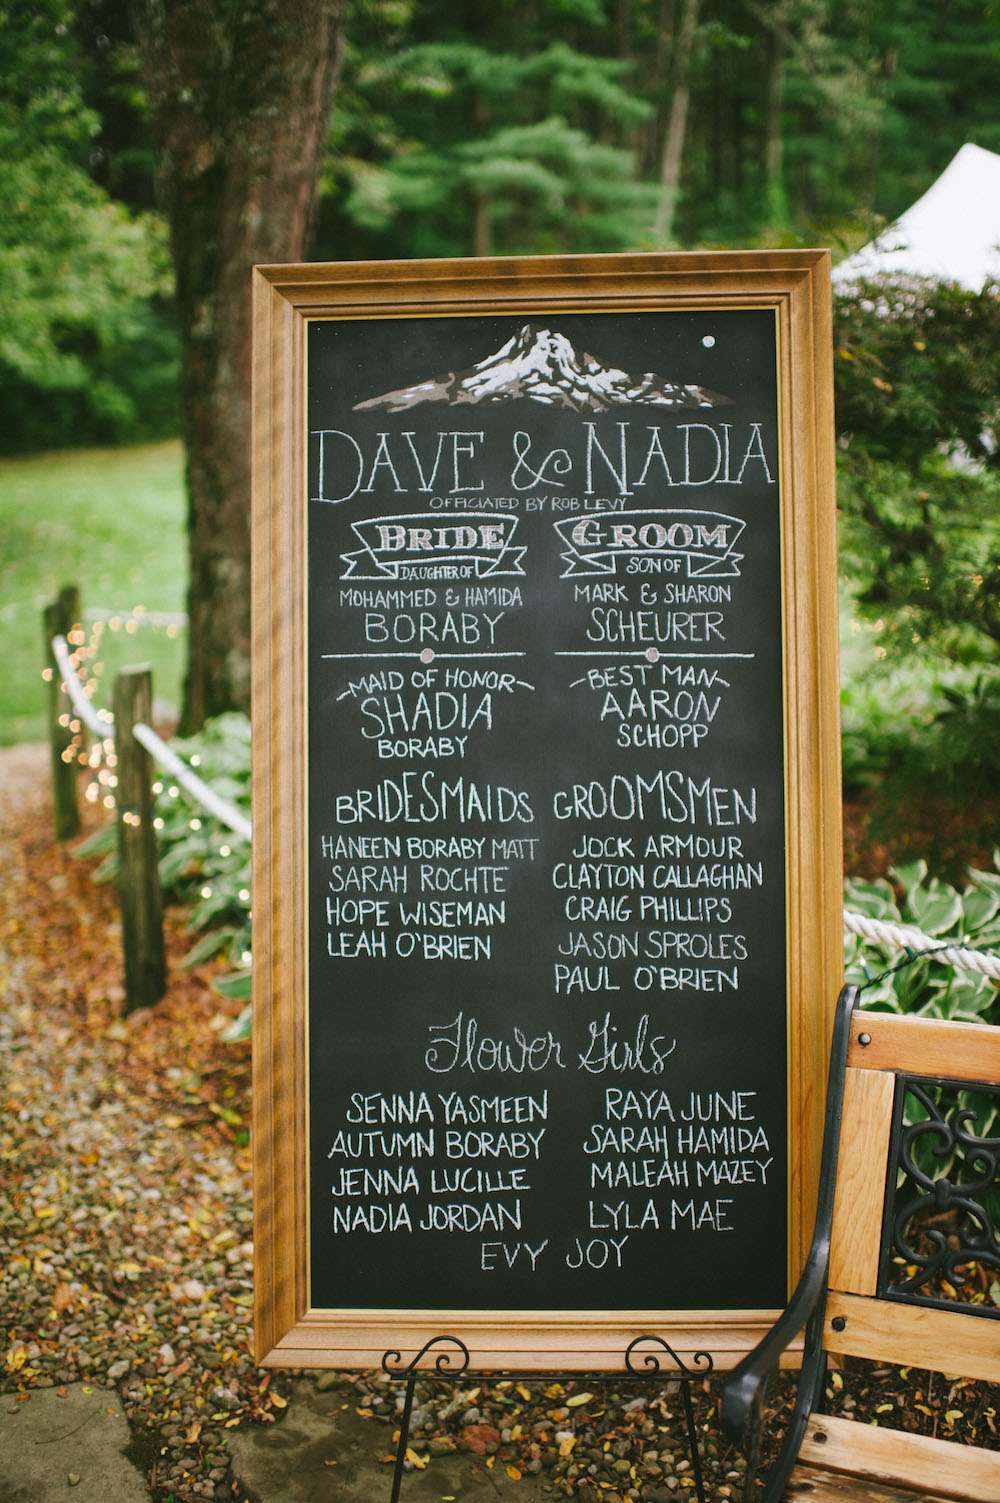 DAVE & NADIA
OFFICIATED BY ROB LEVY
BRIDE
DAUGHTER OF
MOHAMMED & HAMIDA
BORABY
GROOM
SON OF
MARK & SHARON
SCHEURER
MAID OF HONOR
SHADIA
BORABY
BEST MAN
AARON
SCHOPP
BRIDESMAIDS
HANEEN BORABY MATT
SARAH ROCHTE
HOPE WISEMAN
LEAH O'BRIEN
GROOMSMEN
JOCK ARMOUR
CLAYTON CALLAGHAN
CRAIG PHILLIPS
JASON SPROLES
PAUL O'BRIEN
Flower Girls
SENNA YASMEEN
AUTUMN BORABY
JENNA LUCILLE
NADIA JORDAN
RAYA JUNE
SARAH HAMIDA
MALEAH MAZEY
LYLA MAE
EVY JOY